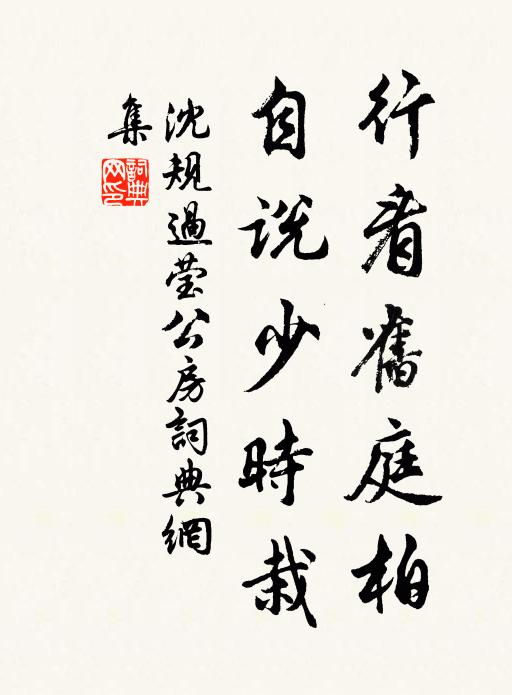 行看舊庭柏
自説少時栽
沈規過瑩公房詞典網
集
詞典網印